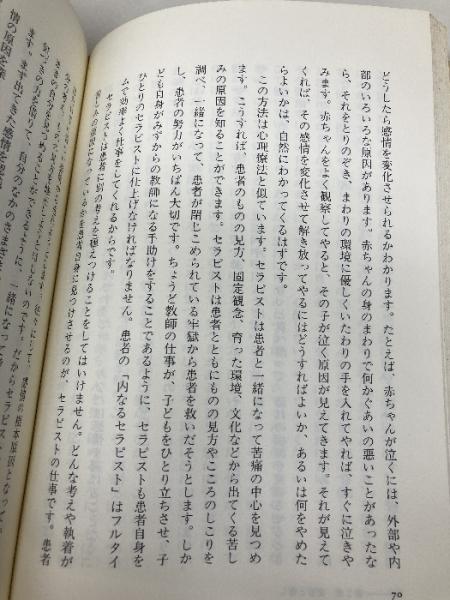 どうしたら感情を変化させられるかわかります。たとえば、赤ちゃんが泣くには、外部や内
部のいろいろな原因があります。赤ちゃんの身のまわりで何かぐあいの悪いことがあったな
ら、それをとりのぞき、まわりの環境に優しくいたわりの手を入れてやれば、すぐに泣きや
みます。赤ちゃんをよく観察してやると、その子が泣く原因が見えてきます。それが見えて
くれば、その感情を変化させて解き放ってやるにはどうすればよいか、あるいは何をやめた
らよいかは、自然にわかってくるはずです。
この方法は心理療法と似ています。セラピストは患者と一緒になって苦痛の中心を見つめ
ます。こうすれば、患者のものの見方、固定観念、育った環境、文化などから出てくる苦し
みの原因を知ることができます。セラピストは患者とともにものの見方や心のしこりを
調べ、一緒になって、患者が閉じこめられている牢獄から患者を救いだそうとします。しか
し、患者の努力がいちばん大切です。ちょうど教師の仕事が、子どもをひとり立ちさせ、子
ども自身がみずからの教師になる手助けをすることであるように、セラピストも患者自身を
ひとりのセラピストに仕上げなければなりません。患者の「内なるセラピスト」はフルタイ
ムで効率よく仕事をしてくれるからです。
セラピストは患者に別の考えを植えつけることをしてはいけません。どんな考えや執着が
苦しみの原因になっているかを患者自身に見つけさせるのが、セラピストの仕事です。患者
感情の根本原因となって
のです。だからセラピスト
ことができるように、一緒になって
気づきの力を借り
ます。まず出てきた感情を認
自分のなかのさまざま
情の原因を深
70